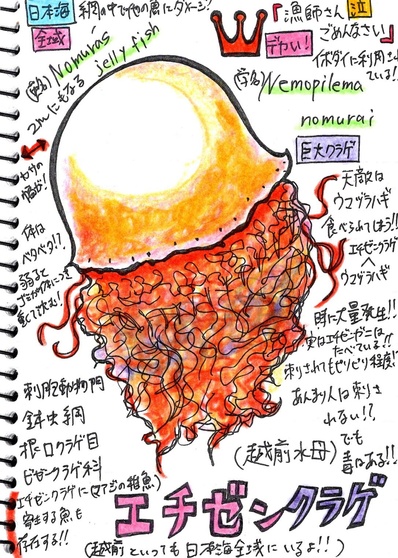 日本海
全域
網の中で他の魚にダメージ!
『漁師さん
ごめんなさい』
泣
デカい!
イボダイに利用され
ている!!
(英名)Nomura's
jelly fish
(学名)Nemopilema
nomurai
巨大クラゲ
2mにもなる
カサの
幅が!
体は
ベタベタ!?
弱ると
重くて沈む!
天敵は
ウマヅラハギ
食べられてしまう!!
エチゼンクラゲ
<
ウマヅラハギ
時に大量発生!!
実はエチゼンガニは
たべている!!
刺されてもピリピリ程度!
あんまり人は刺さ
れない!?
でも
毒はある!!
刺胞動物門
鉢虫綱
根口クラゲ目
ビゼンクラゲ科
エチゼンクラゲに(マアジの稚魚)
寄生する魚も
存在する!!
(越前水母)
エチゼンクラゲ
(越前といっても日本海全域にいるよ!!)